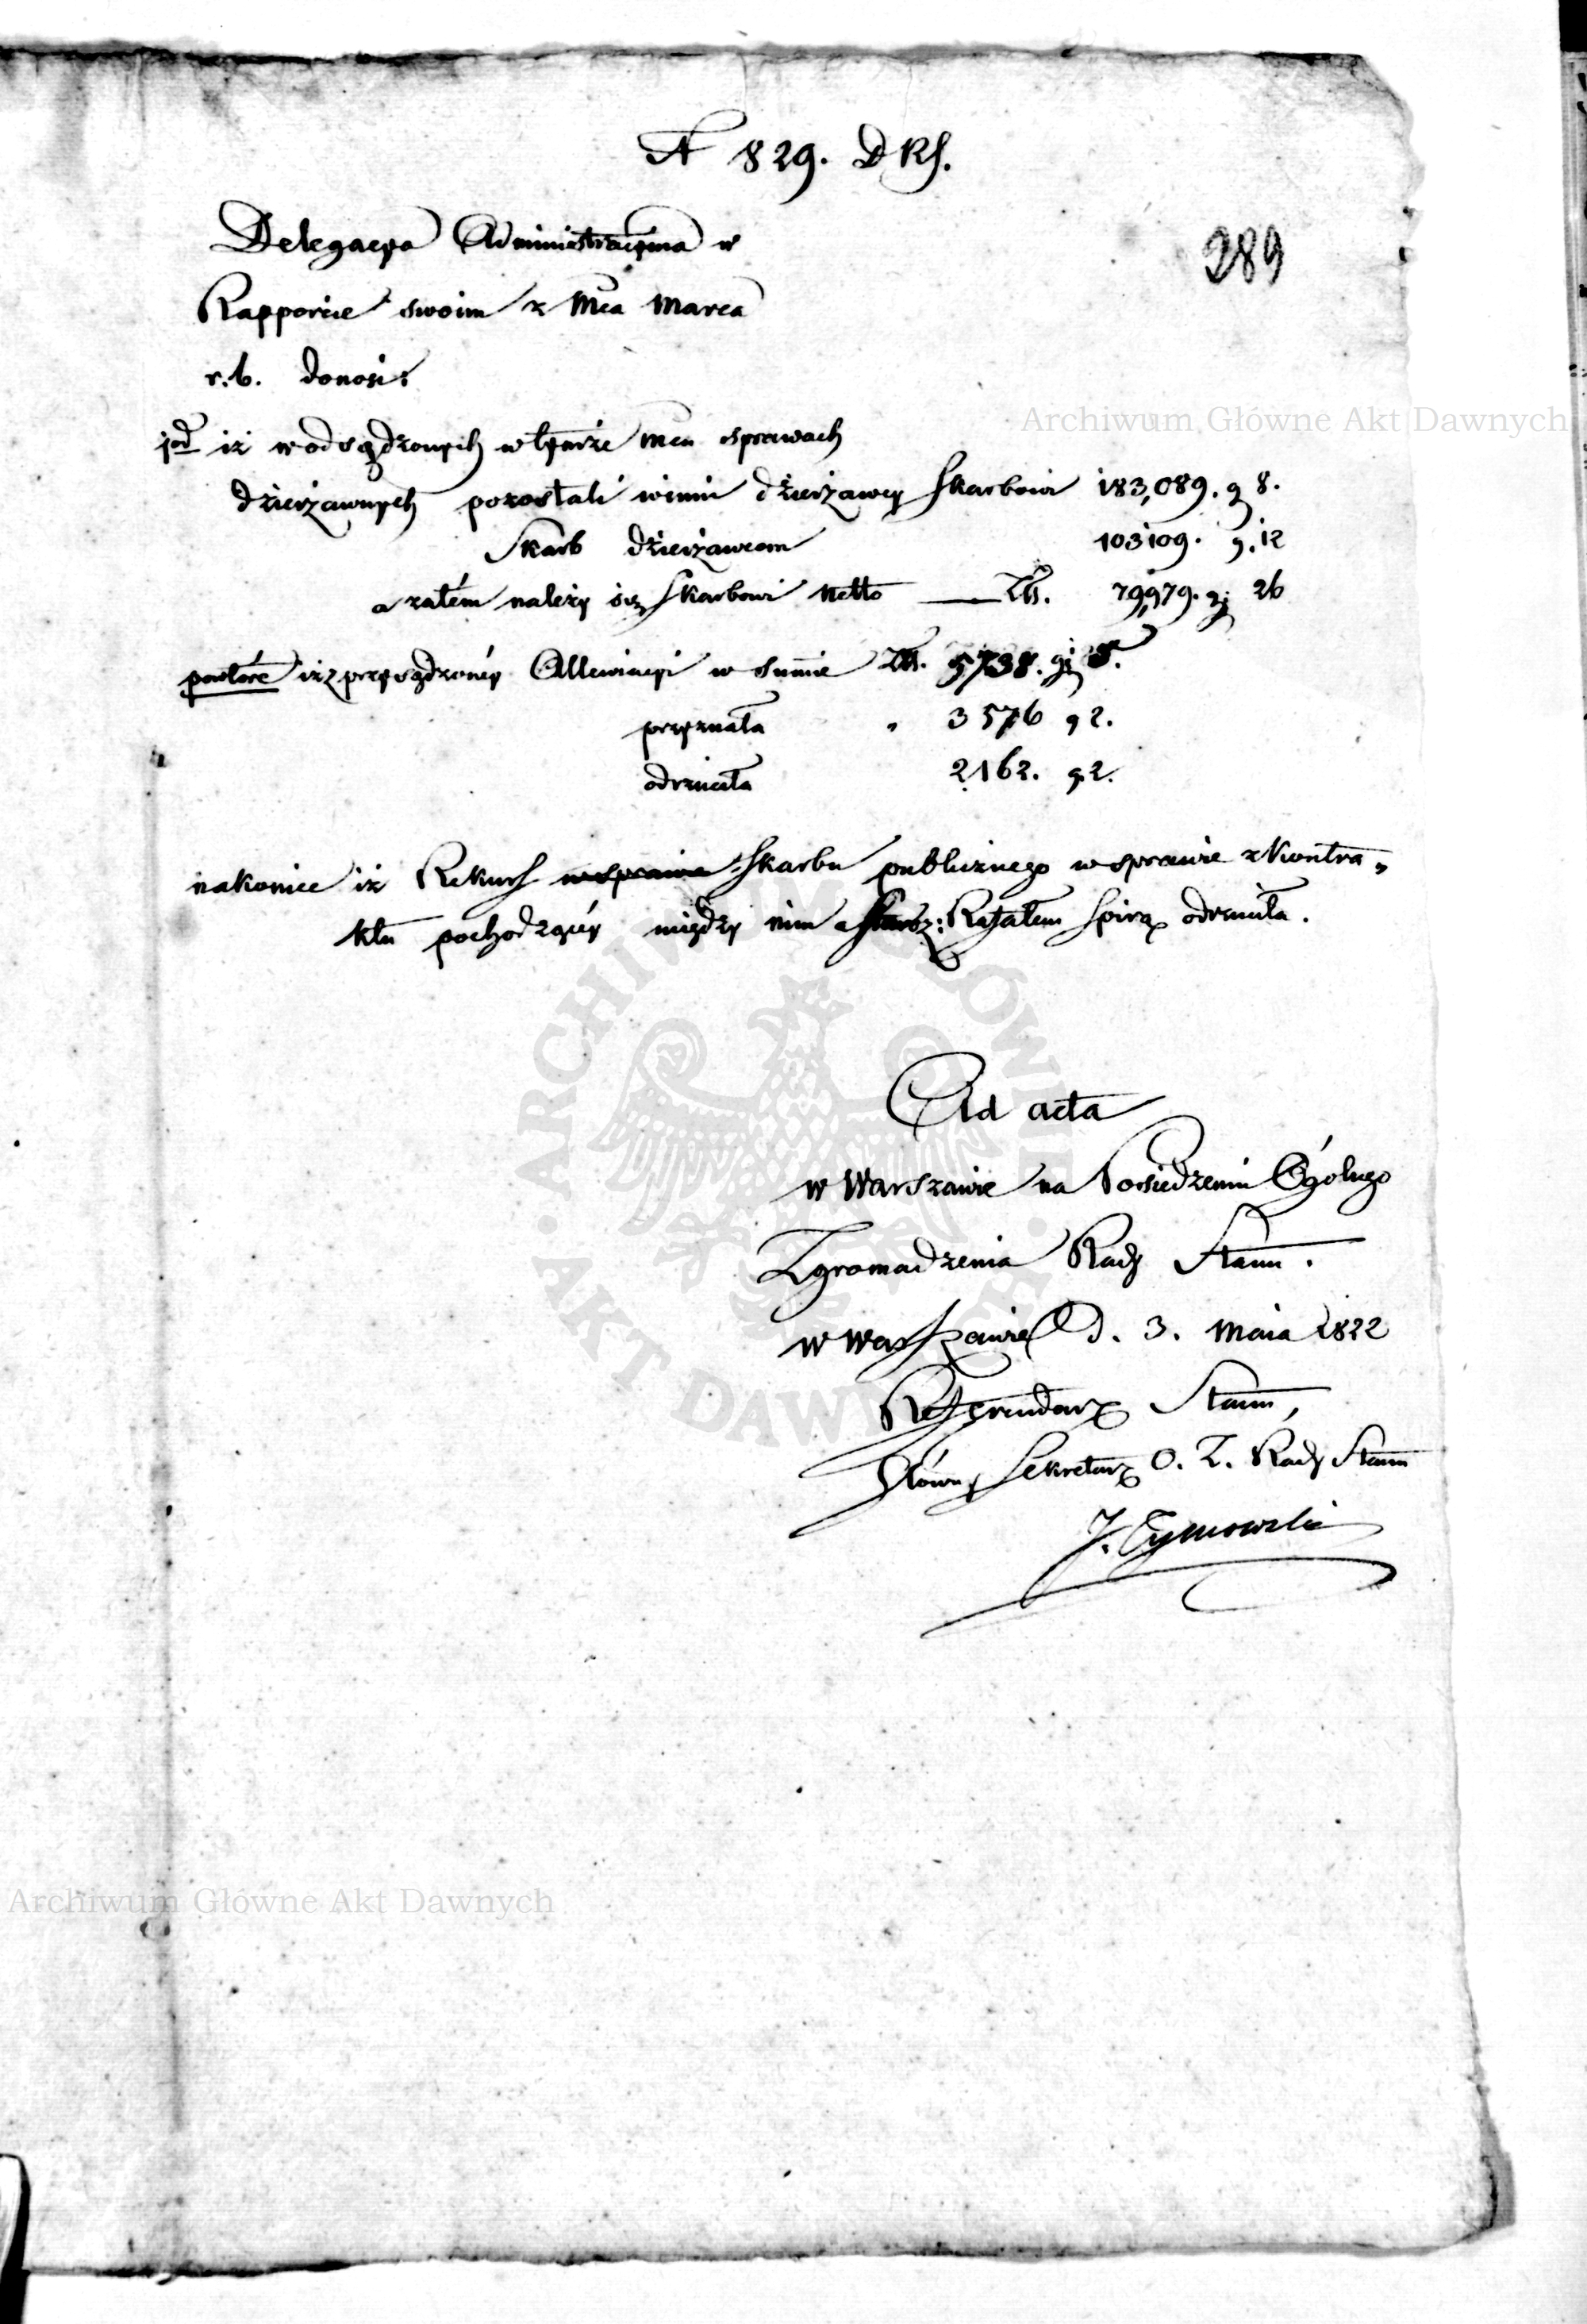 A 829. D RS.
289
Delegacya Administracyina w
Rapporcie swoim z Mca Marca
r.b. donosi:
Archiwum Główne Akt Dawnych
1od iż w odsądzonych w tymże Mcu sprawach
dzierżawnych pozostali winni dzierżawcy Skarbowi 183,089. g 8.
Skarb dzierżawcom 103109. g. 12
a zatém należy się Skarbowi Netto — Złł. 79,979. g 26
powtóre iż z przysądzonéy Allewiacyi w summie Złł. 5,738. g
przyznała " 3576 g 2.
odrzuciła 2162. g 2.
nakoniec iż Rekurs w sprawie Skarbu publicznego w sprawie z kontra„
ktu pochodzącéy między nim a Rafałem Spirą odrzuciła.
Ad acta
w Warszawie na Posiedzeniu Ogólnego
Zgromadzenia Rady Stanu.
w Warszawie d. 3. Maia 1822
Referendarz Stanu,
Główny Sekretarz O. Z. Rady Stanu
J. Tymowski
ARCHIWUM GŁÓWNE AKT DAWNYCH
Archiwum Główne Akt Dawnych